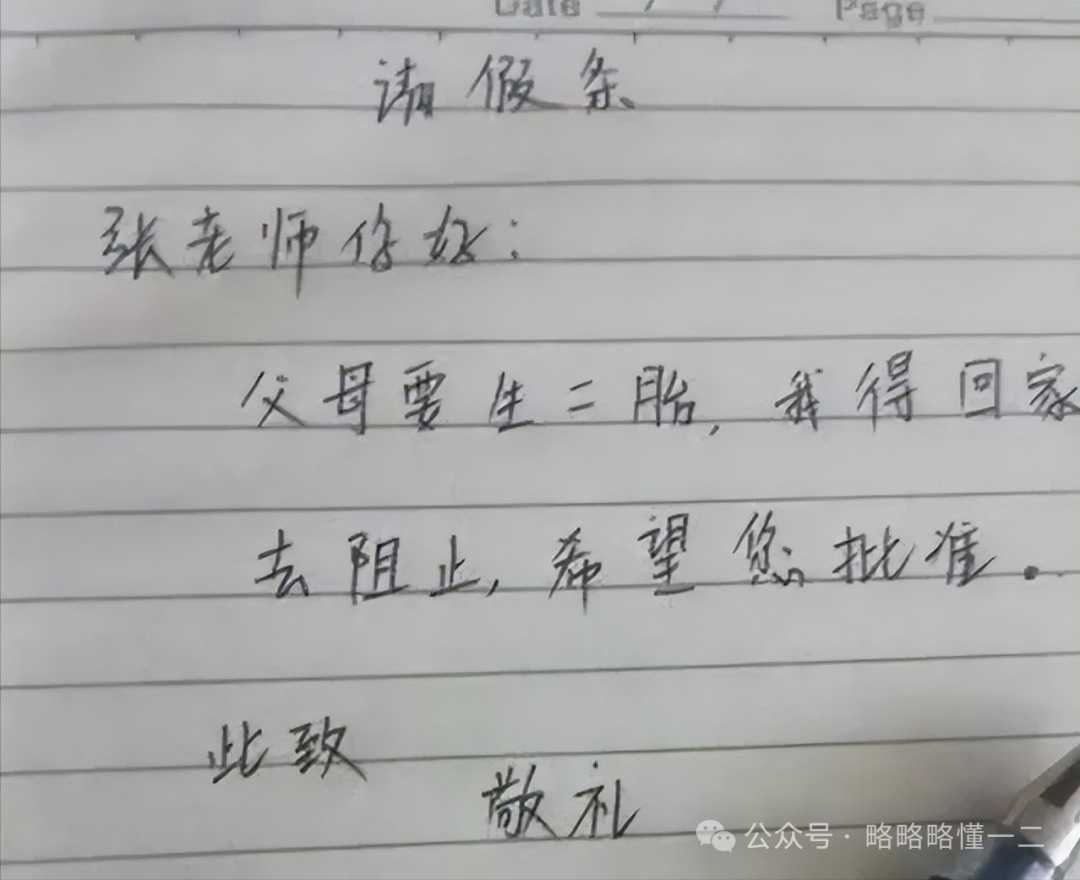 Date / / Page
请假条
张老师你好:
父母要生二胎,我得回家
去阻止,希望您批准.
此致
敬礼
公众号·略略略懂一二